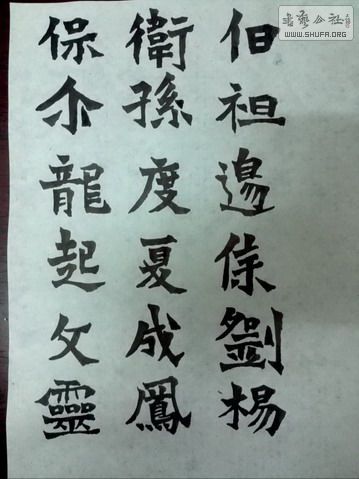 伯祖邊保劉楊
衛孫度夏成鳳
保尒龍起文靈
書藝公社
WWW.SHUFA.ORG